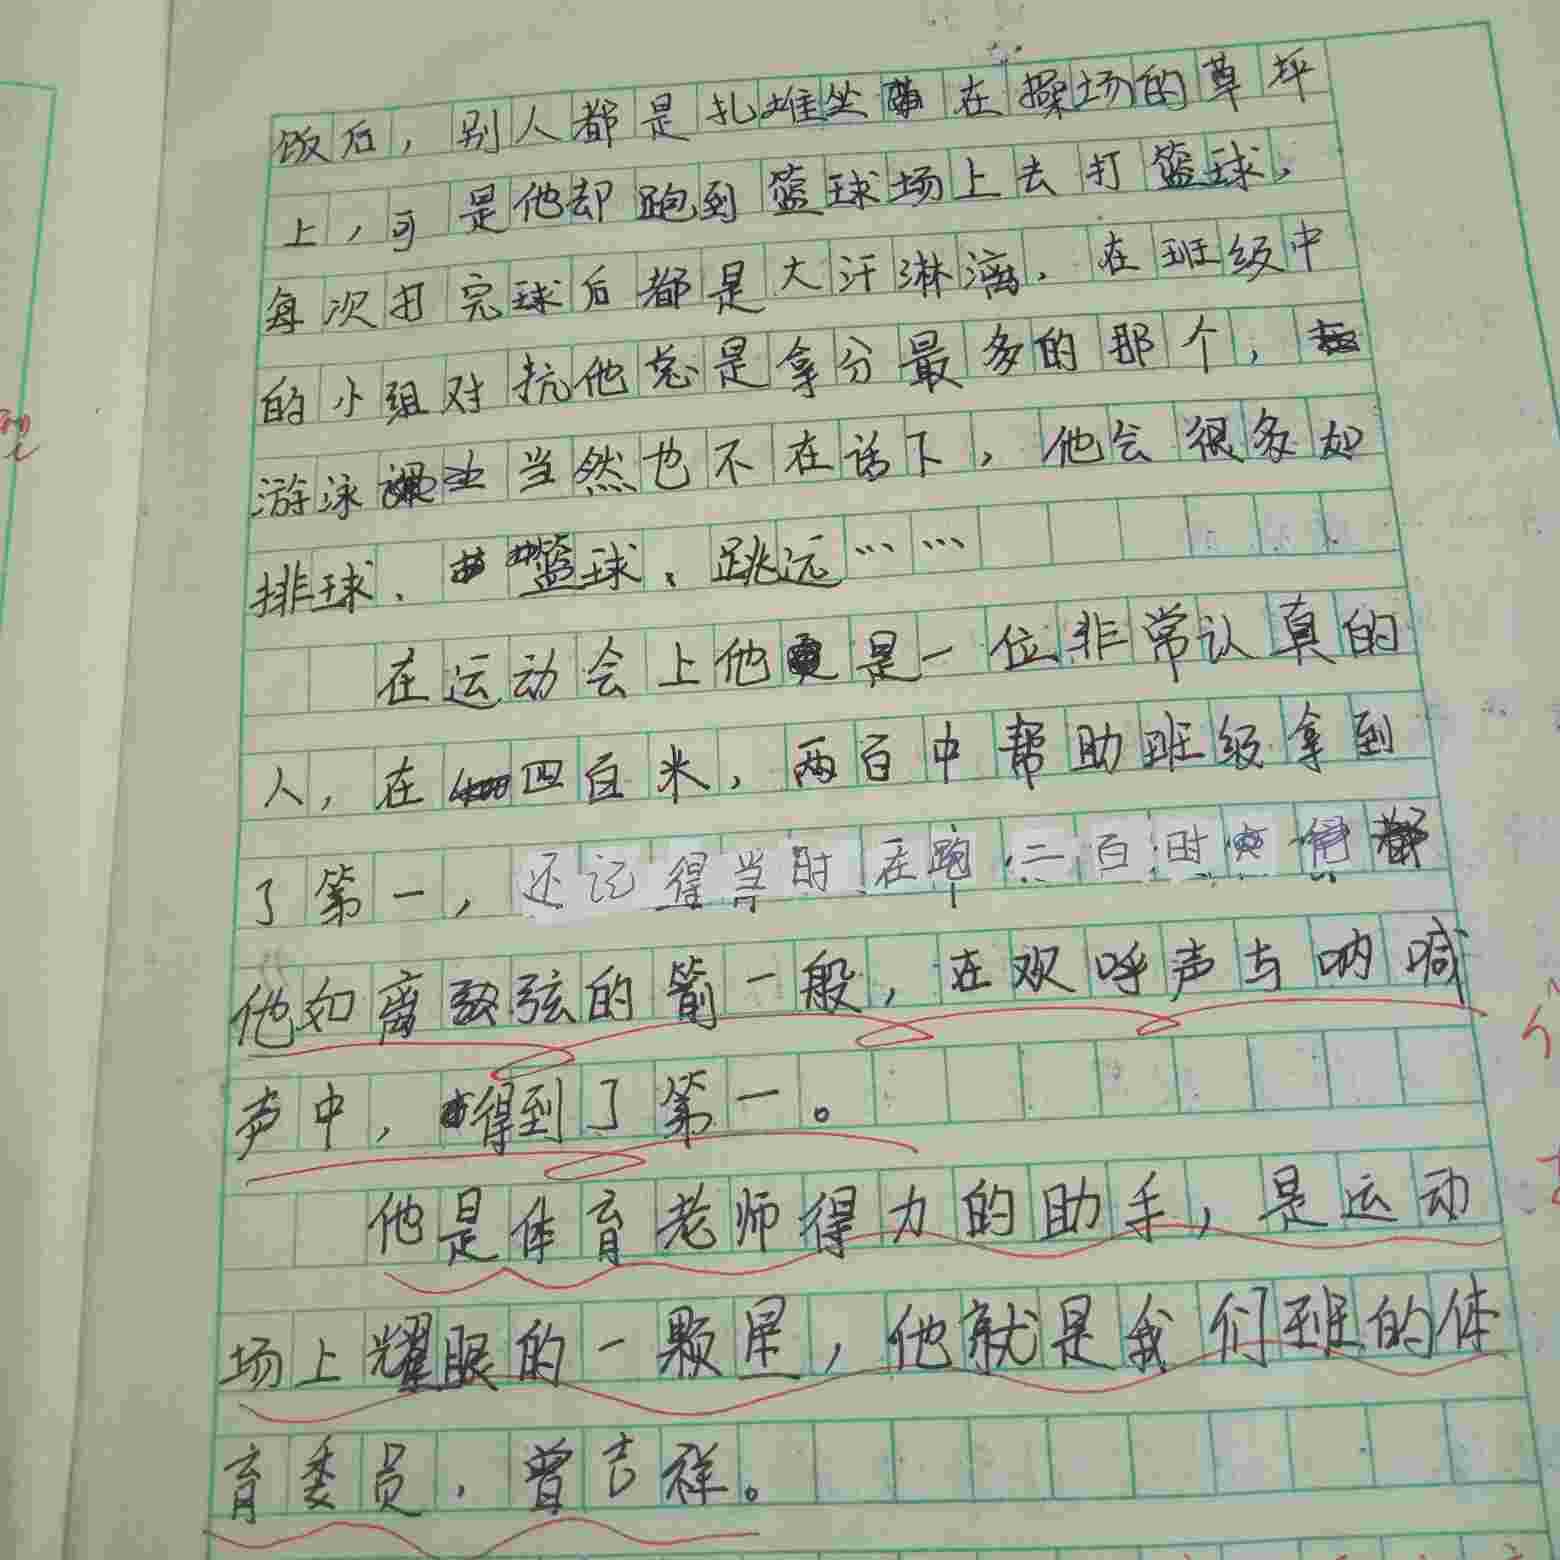 饭后，别人都是扎堆坐在操场的草坪
上，可是他却跑到篮球场上去打篮球，
每次打完球后都是大汗淋漓．在班级中
的小组对抗他总是拿分最多的那个，
游泳当然也不在话下，他会很多如
排球、篮球、跳远……
在运动会上他是一位非常认真的
人，在四百米，两百中帮助班级拿到
了第一，还记得当时在跑二百时
他如离弦的箭一般，在欢呼声与呐喊
声中，得到了第一。
他是体育老师得力的助手，是运动
场上耀眼的一颗星，他就是我们班的体
育委员．曾吉祥。